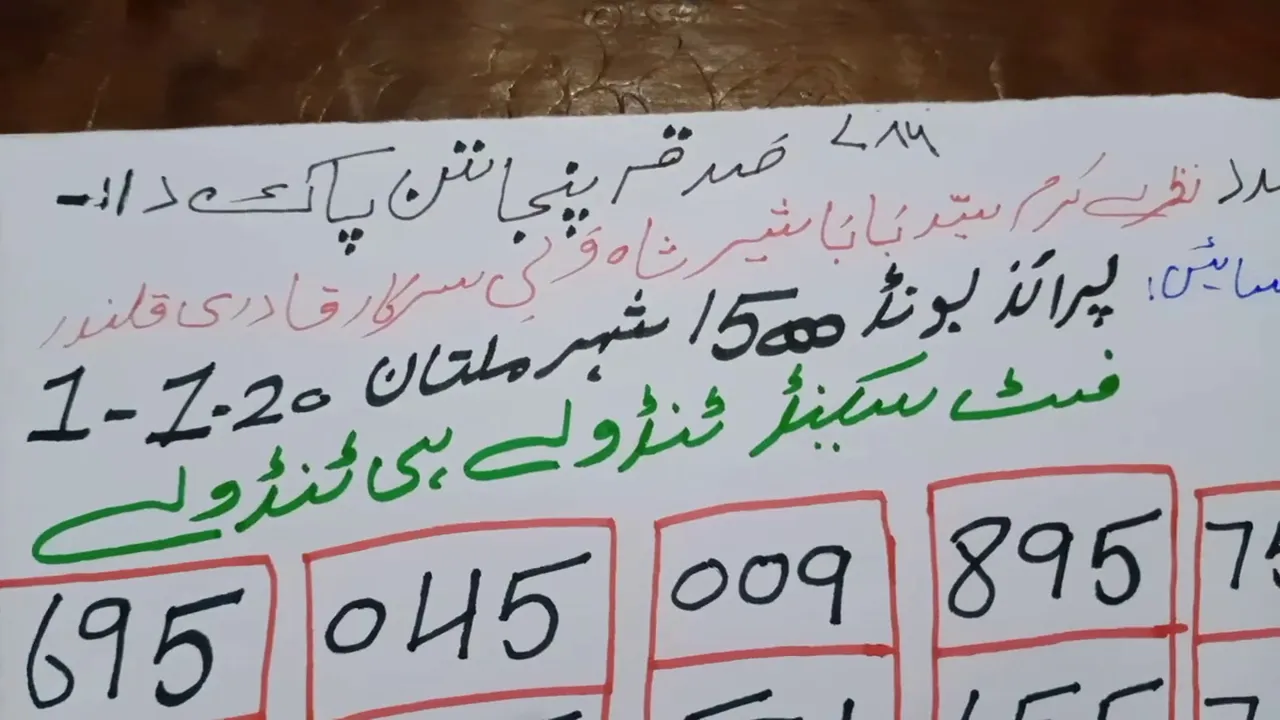 ۷۸۶
صدقہ پنجاتن پاک دا۔
نظرے کرم سیّد بَابَا شیر شاہ وَلی سرکار قادری قلندر
سایئں: پرائز بونڈ 15000 شہر ملتان 1-1-20
فسٹ سکینڈ ٹنڈولے ہی ٹنڈولے
695 045 009 895